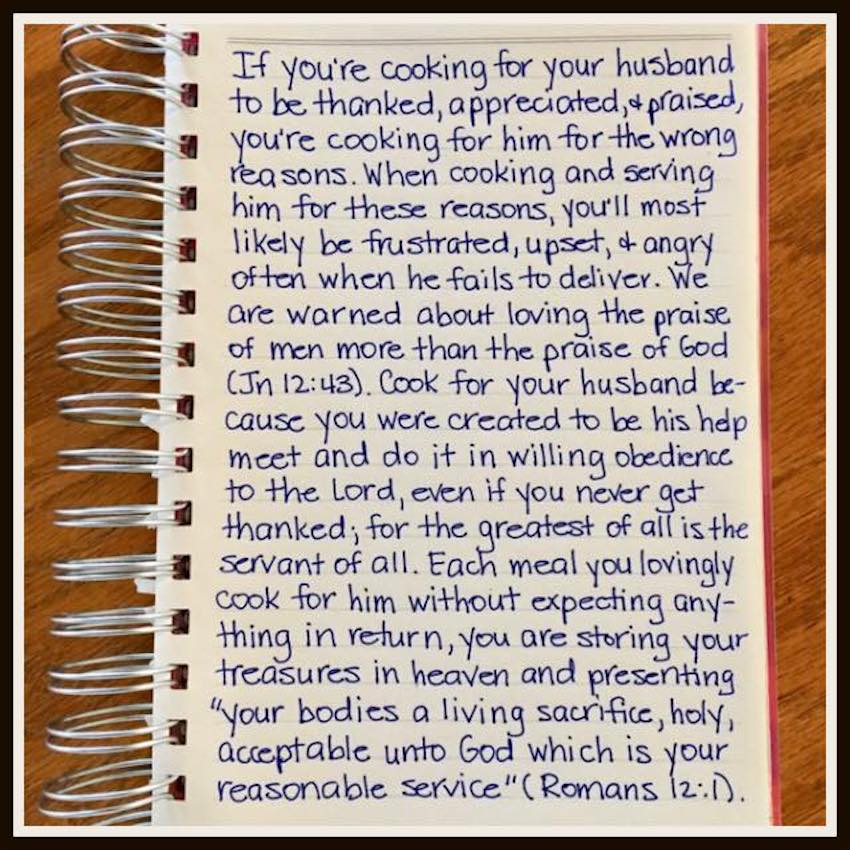 If you're cooking for your husband
to be thanked, appreciated, & praised,
you're cooking for him for the wrong
reasons. When cooking and serving
him for these reasons, you'll most
likely be frustrated, upset, & angry
often when he fails to deliver. We
are warned about loving the praise
of men more than the praise of God
(Jn 12:43). Cook for your husband be-
cause you were created to be his help
meet and do it in willing obedience
to the Lord, even if you never get
thanked; for the greatest of all is the
servant of all. Each meal you lovingly
cook for him without expecting any-
thing in return, you are storing your
treasures in heaven and presenting
"your bodies a living sacrifice, holy,
acceptable unto God which is your
reasonable service" (Romans 12:1).